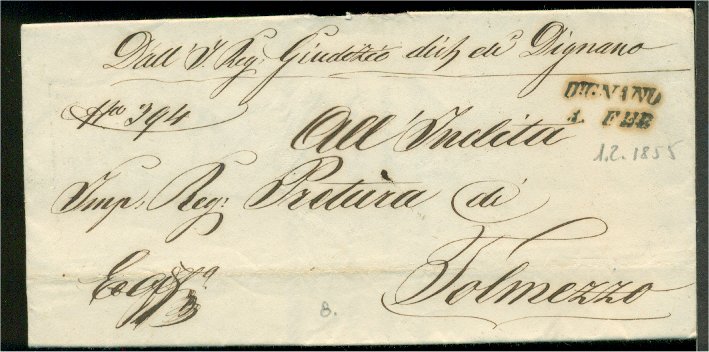 Dall' I. Reg: Giudizio di Dignano
DIGNANO
1. FEB
1.2.1855
Nro 394
All' Inclita
Imp: Reg: Pretura di
Tolmezzo
8.